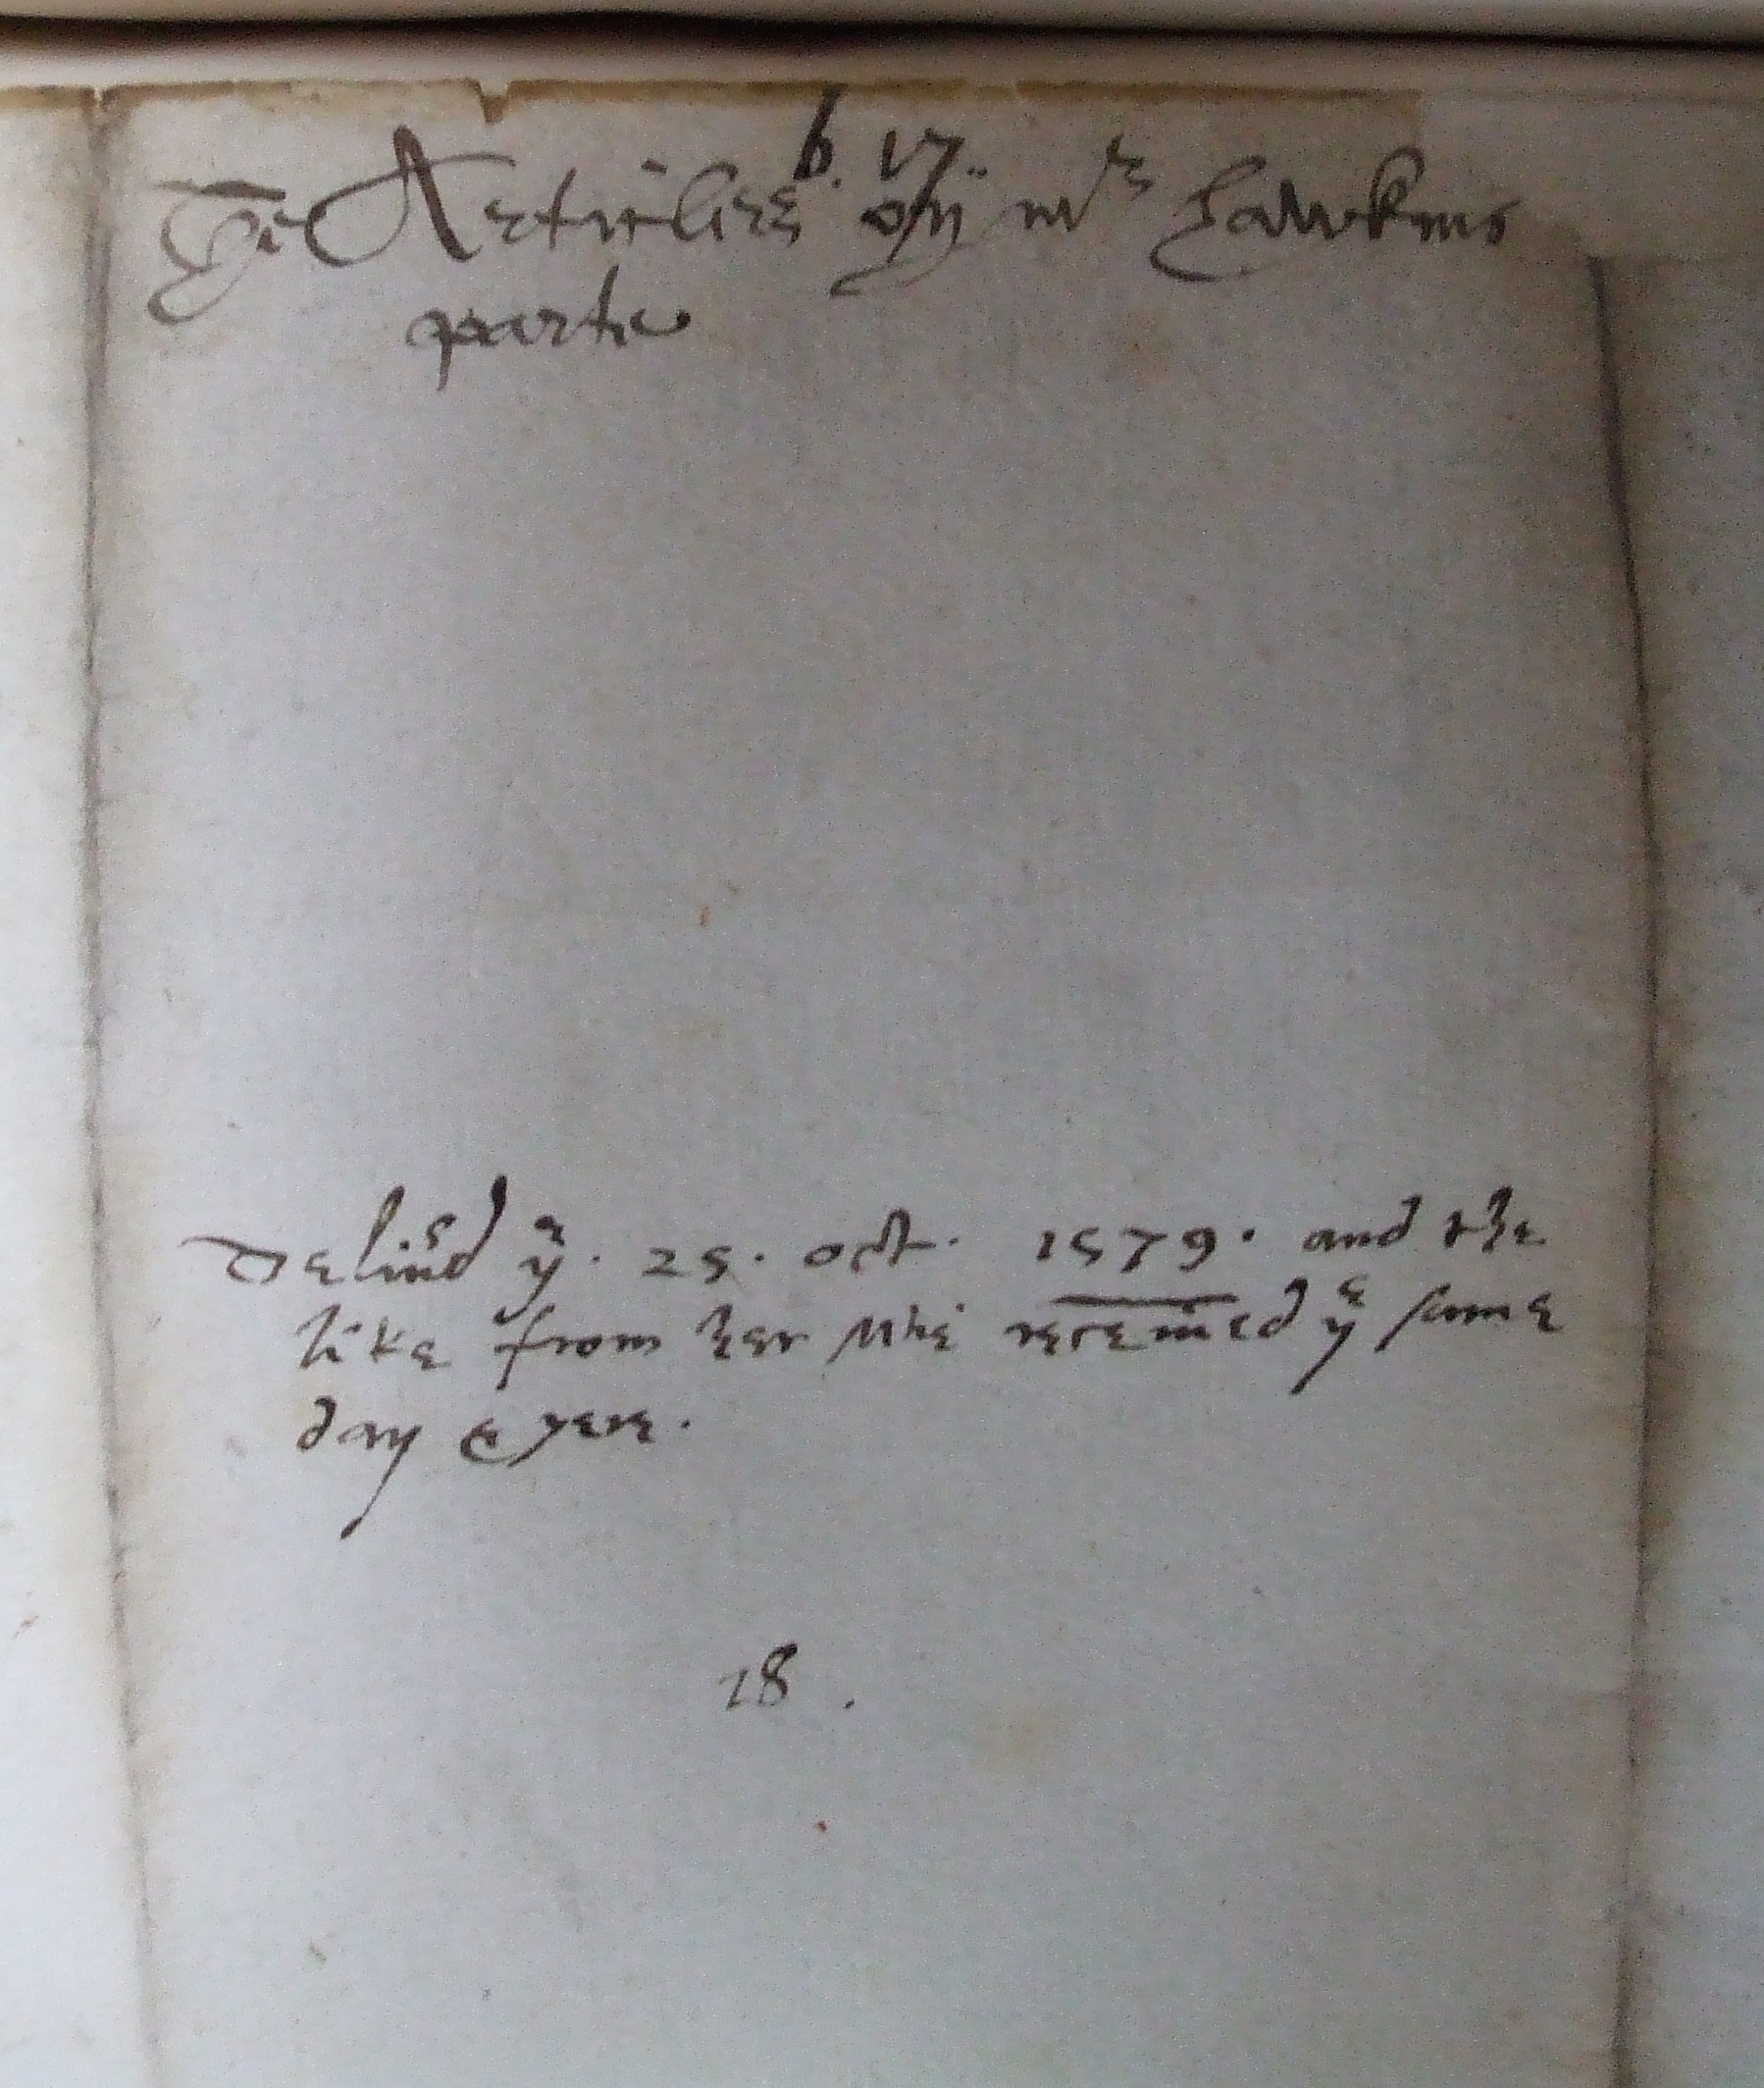 b. 17.
The Articlees on mr Hawkins
parte
Deliu'd ye. 25. oct. 1579. and the
like from her Mtie receiued ye same
day & yere.
18.